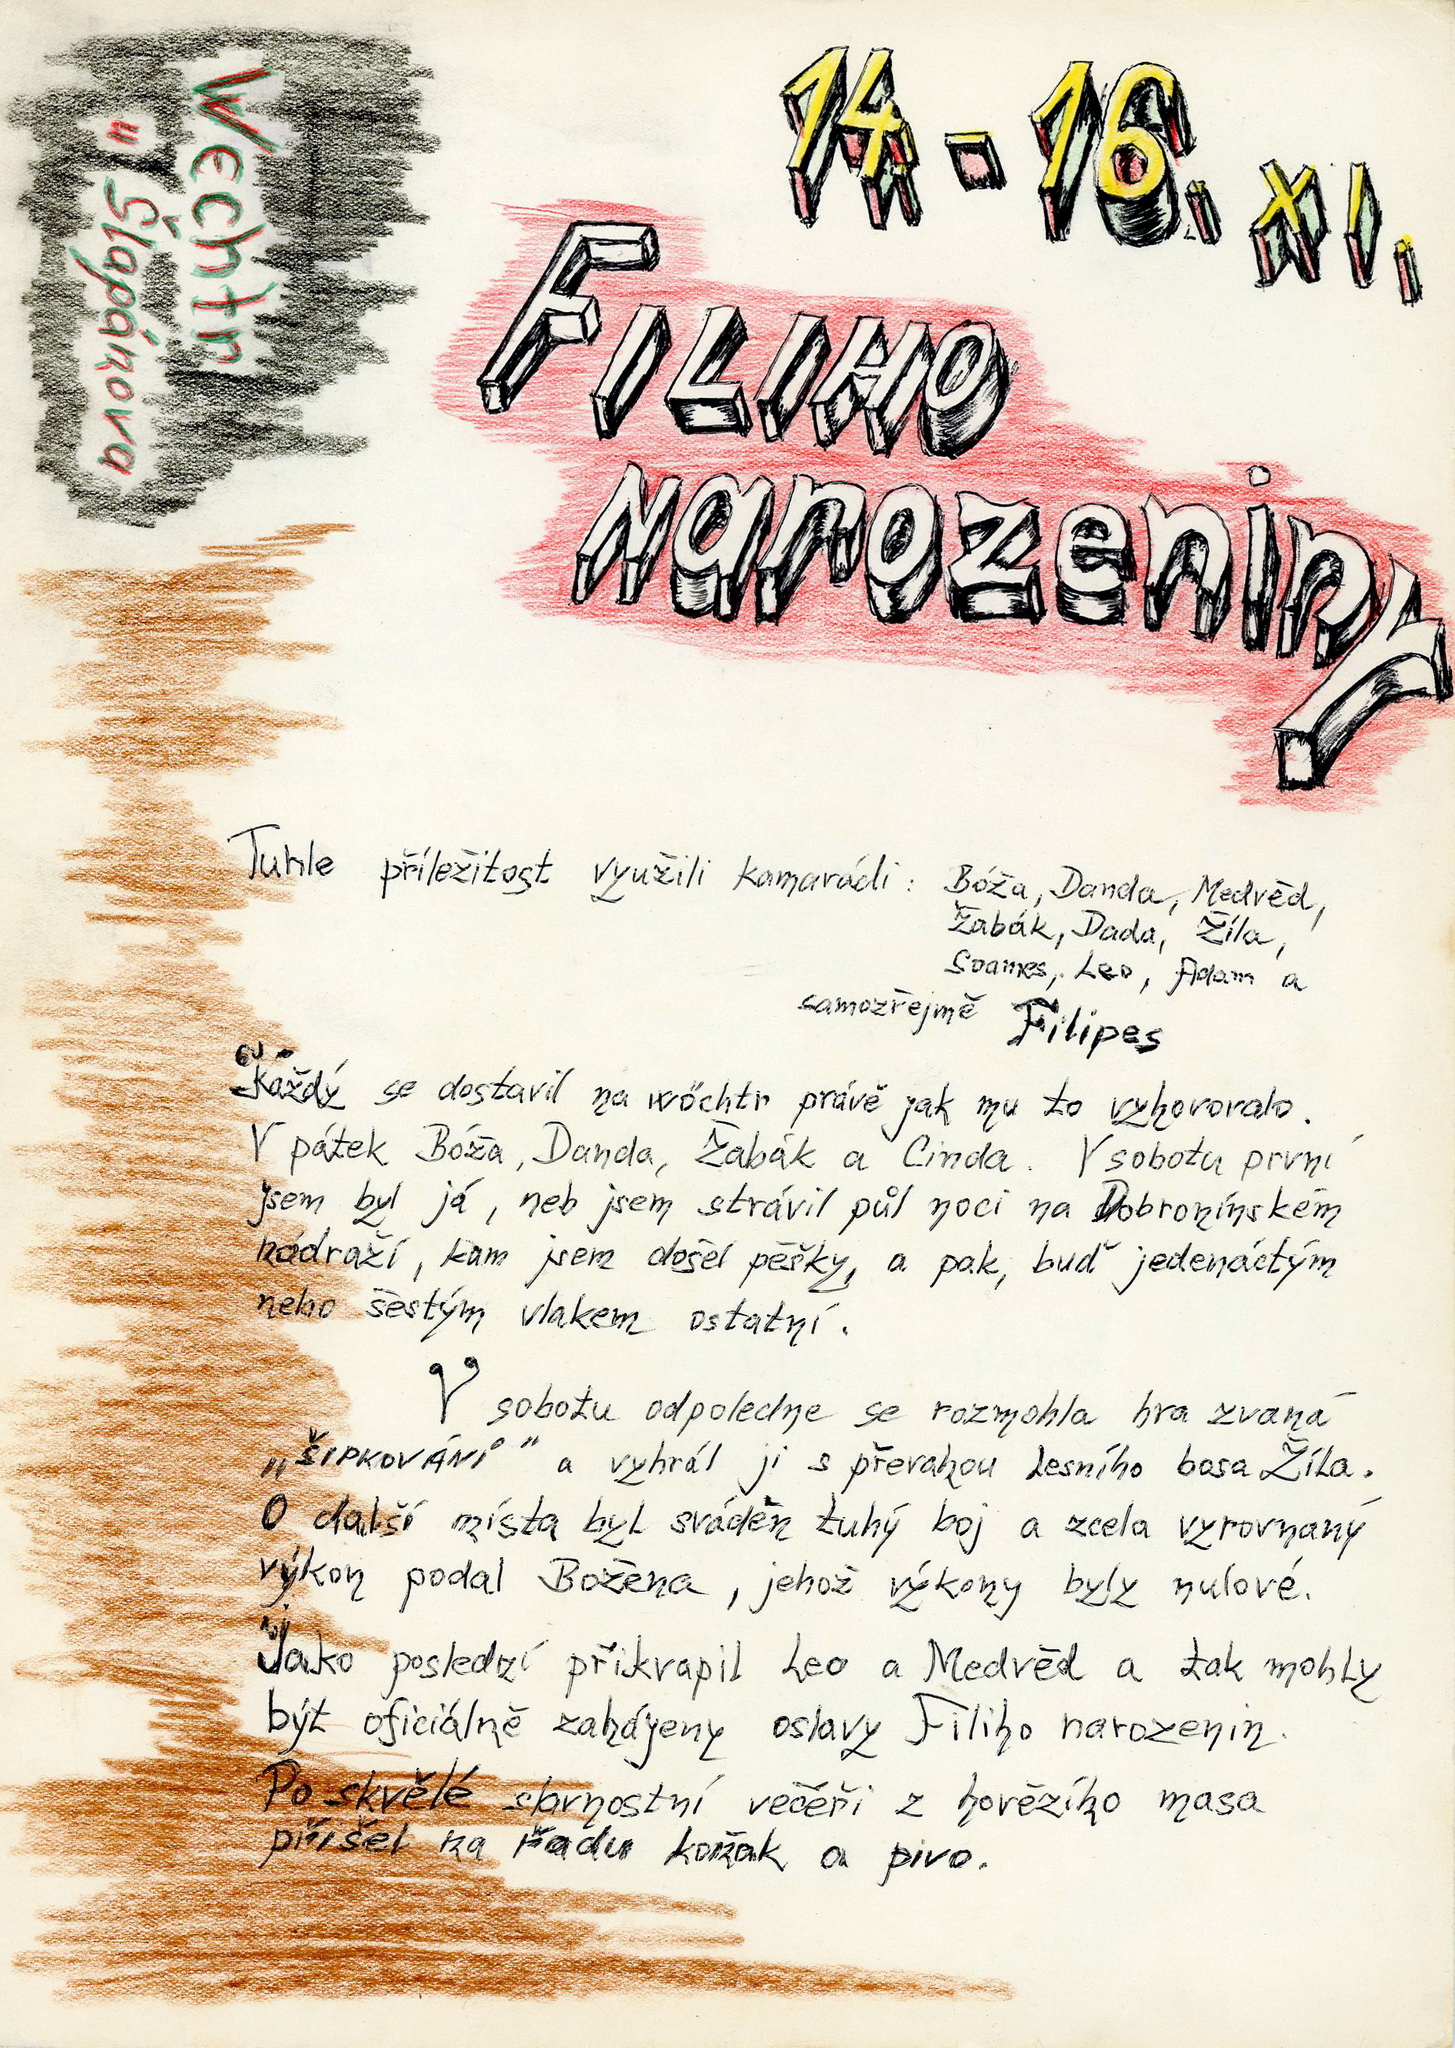 Wechtr
" Šlapánova
14.-16. XI.
FILIHO
narozeniny
Tuhle příležitost využili kamarádi: Bóža, Danda, Medvěd,
Žabák, Dada, Žíla,
Soames, Leo, Adam a
samozřejmě Filipes
Každý se dostavil na wöchtr právě jak mu to vyhovovalo.
V pátek Bóža, Danda, Žabák a Cinda. V sobotu první
jsem byl já, neb jsem strávil půl noci na Dobronínském
nádraží, kam jsem došel pěšky, a pak, buď jedenáctým
nebo šestým vlakem ostatní.
V sobotu odpoledne se rozmohla hra zvaná
„ŠIPKOVÁNÍ" a vyhrál ji s převahou lesního bosa Žíla.
O další místa byl sváděn tuhý boj a zcela vyrovnaný
výkon podal Božena, jehož výkony byly nulové.
Jako poslední přikvapil Leo a Medvěd a tak mohly
být oficiálně zahájeny oslavy Filiho narozenin.
Po skvělé slavnostní večeři z hovězího masa
přišel na řadu koňak a pivo.